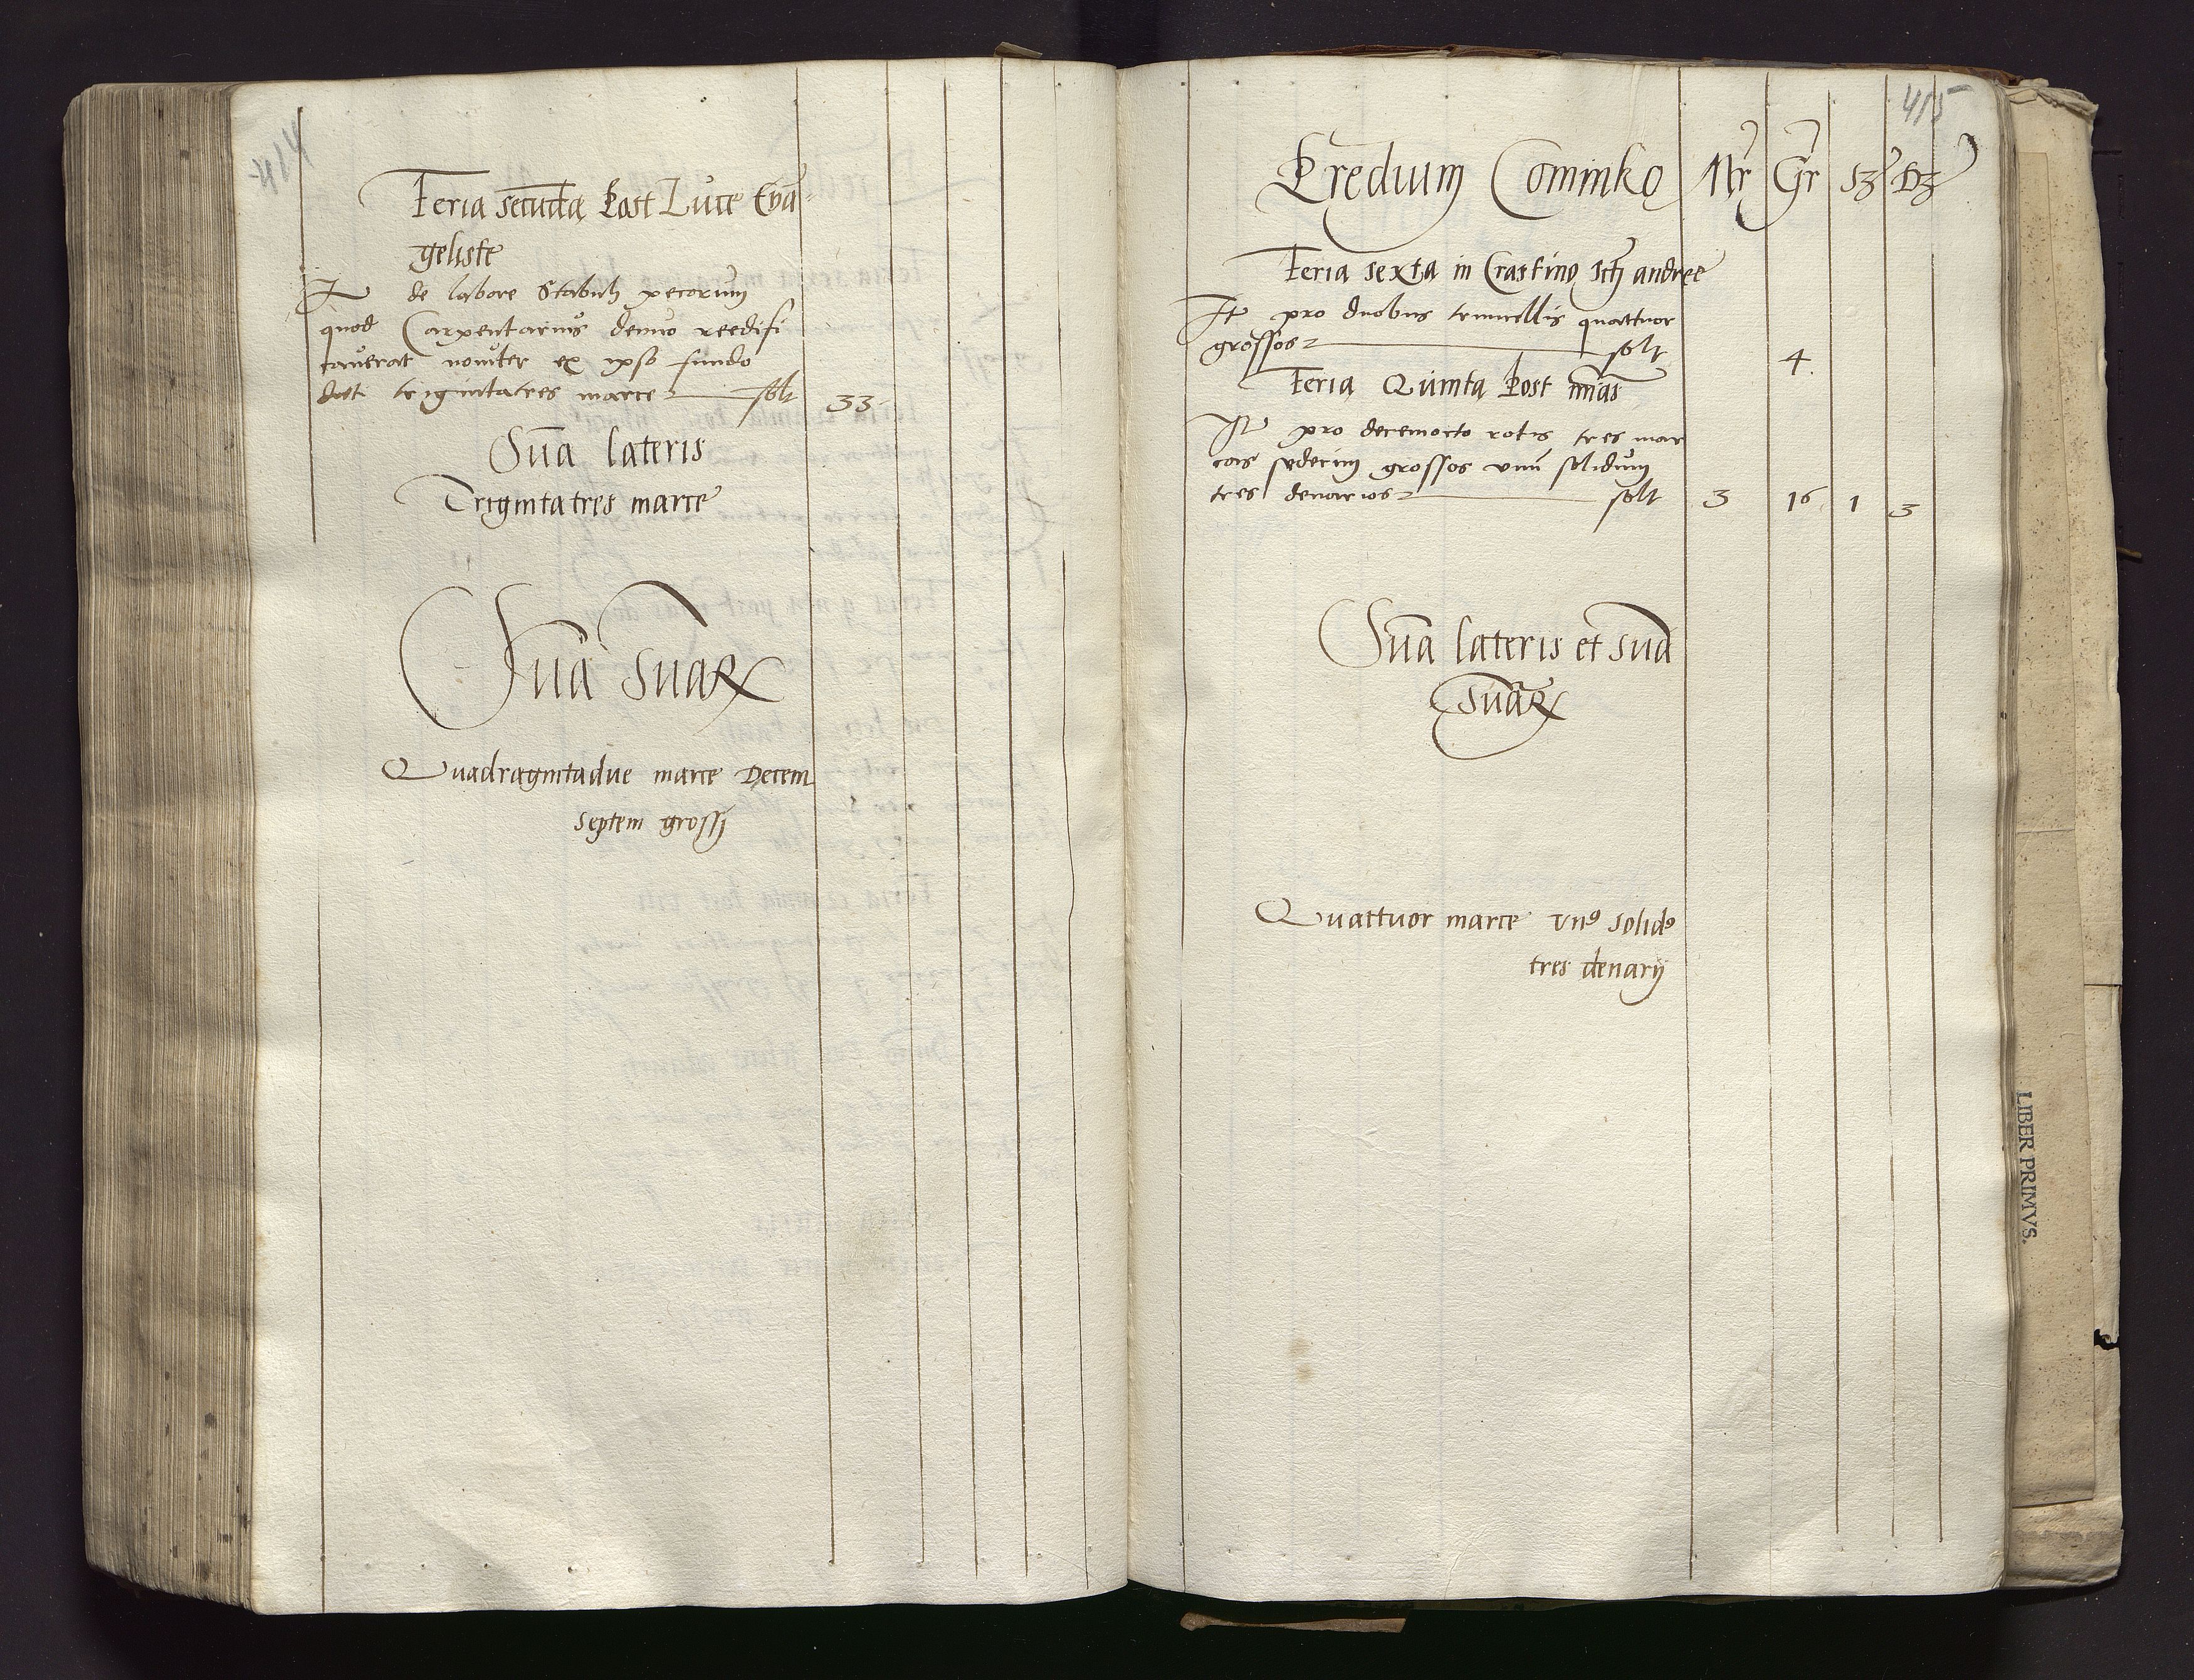 414
Feria secūda Post Luce Evā=
geliste
It de labore Stabuli pecorum
quod Carpentarius denuo reedifi
caverat noviter ex ipso fundo
dedi trigintatres marce solt 33
Sūa lateris
Trigintatres marce
Sūa Suaꝝ
Quadragintadue marce Decem
septem grossj
415
Predium Cominko Mr Gr Sʒ Dʒ
Feria sexta in Crastino Scti andree
It pro duobus truncellis quattuor
grossos solt 4.
Feria Quinta Post
It pro decemocto rotis tres mar
cas sedecim grossos unū solidum
tres denarios solt 3 16 1 3
Sūa lateris et sūa
suāꝝ
Quattuor marce vnꝰ solidꝰ
tres denarij
LIBER PRIMVS.